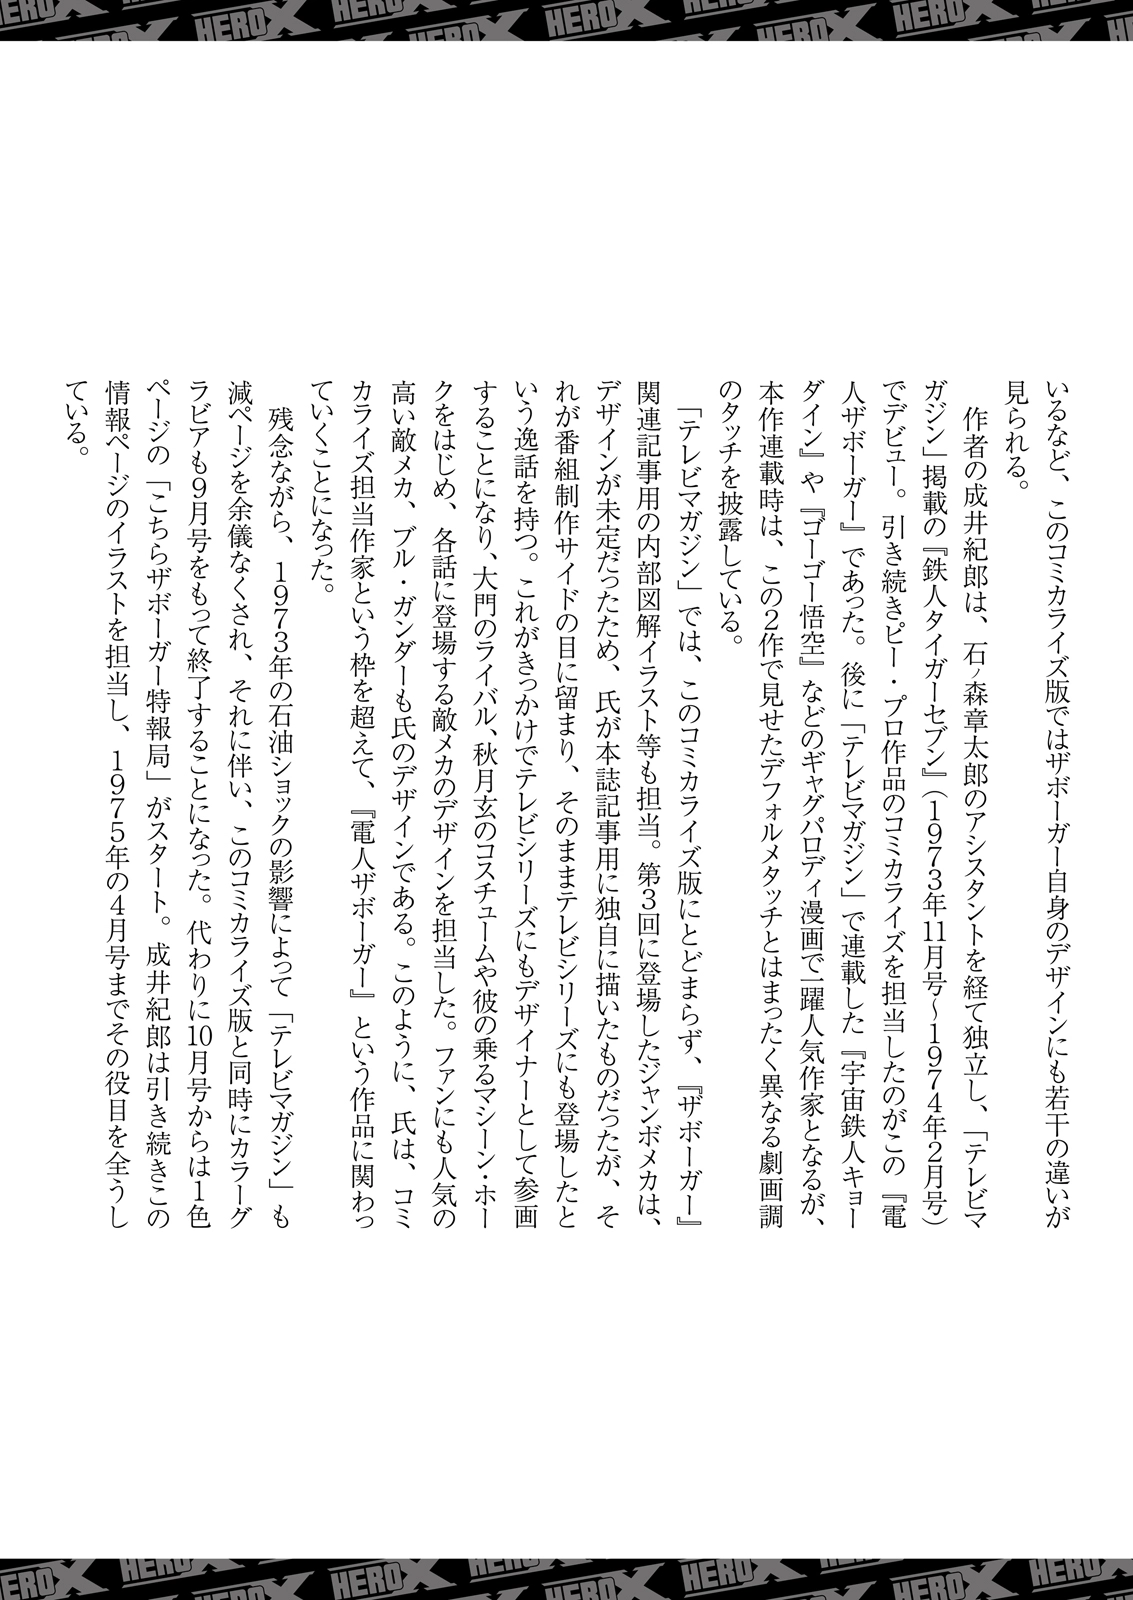 HERO X HERO X HERO X HERO X HERO X HERO X
いるなど、このコミカライズ版ではザボーガー自身のデザインにも若干の違いが
見られる。
作者の成井紀郎は、石ノ森章太郎のアシスタントを経て独立し、「テレビマ
ガジン」掲載の『鉄人タイガーセブン』（1973年11月号～1974年2月号）
でデビュー。引き続きピー・プロ作品のコミカライズを担当したのがこの『電
人ザボーガー』であった。後に「テレビマガジン」で連載した『宇宙鉄人キョー
ダイン』や『ゴーゴー悟空』などのギャグパロディ漫画で一躍人気作家となるが、
本作連載時は、この2作で見せたデフォルメタッチとはまったく異なる劇画調
のタッチを披露している。
「テレビマガジン」では、このコミカライズ版にとどまらず、『ザボーガー』
関連記事用の内部図解イラスト等も担当。第3回に登場したジャンボメカは、
デザインが未定だったため、氏が本誌記事用に独自に描いたものだったが、そ
れが番組制作サイドの目に留まり、そのままテレビシリーズにも登場したと
いう逸話を持つ。これがきっかけでテレビシリーズにもデザイナーとして参画
することになり、大門のライバル、秋月玄のコスチュームや彼の乗るマシーン・ホー
クをはじめ、各話に登場する敵メカのデザインを担当した。ファンにも人気の
高い敵メカ、ブル・ガンダーも氏のデザインである。このように、氏は、コミ
カライズ担当作家という枠を超えて、『電人ザボーガー』という作品に関わっ
ていくことになった。
残念ながら、1973年の石油ショックの影響によって「テレビマガジン」も
減ページを余儀なくされ、それに伴い、このコミカライズ版と同時にカラーグ
ラビアも9月号をもって終了することになった。代わりに10月号からは1色
ページの「こちらザボーガー特報局」がスタート。成井紀郎は引き続きこの
情報ページのイラストを担当し、1975年の4月号までその役目を全うし
ている。
HERO X HERO X HERO X HERO X HERO X HERO X